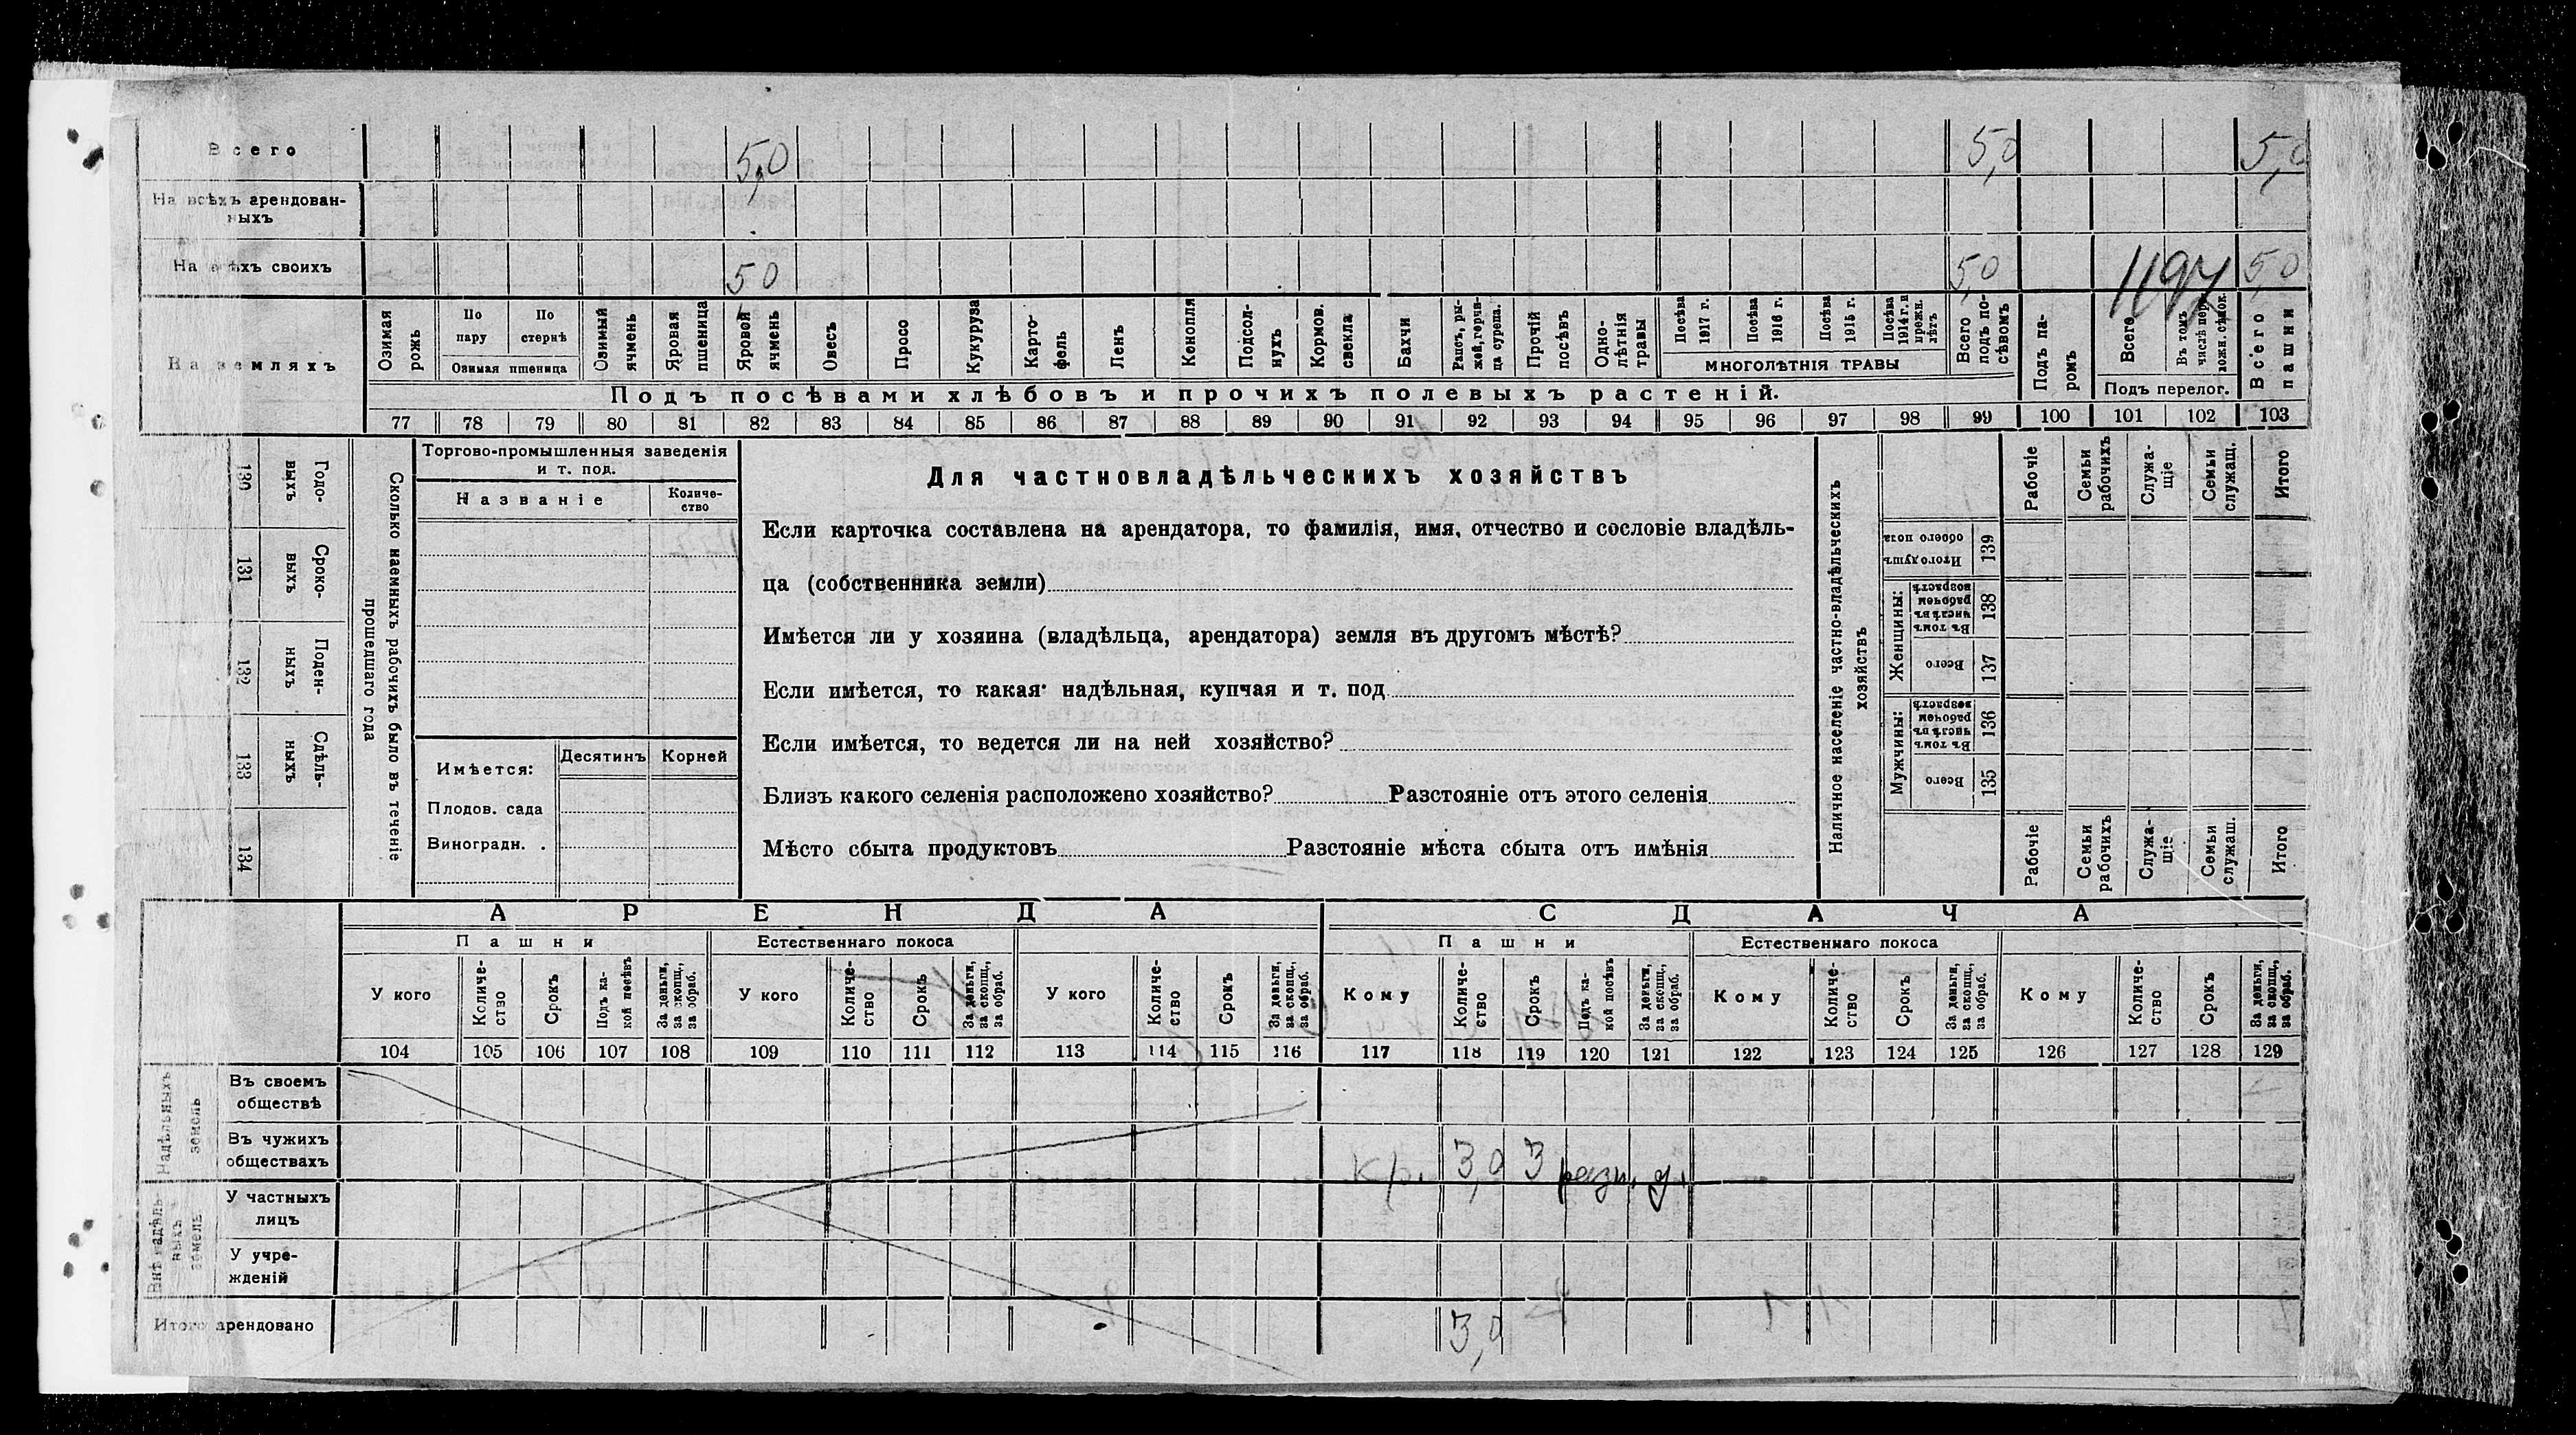 Всего 5,0 5,0 5,0
На всѣхъ арендован-
ныхъ
На всѣхъ своихъ 50 5,0 1197 5,0
На земляхъ
Озимая рожь
По пару
По стернѣ
Озимая пшеница
Озимый ячмень
Яровая пшеница
Яровой ячмень
Овесъ
Просо
Кукуруза
Карто-
фель
Ленъ
Конопля
Подсол-
нухъ
Кормов.
свекла
Бахчи
Рапсъ, ры-
жей, горчи-
ца сурепа.
Прочій посѣвъ
Одно-
лѣтнія
травы
Посѣва 1917 г.
Посѣва 1916 г.
Посѣва 1915 г.
Посѣва 1914 г. и прежн. лѣтъ
МНОГОЛѢТНІЯ ТРАВЫ
Всего подъ по-
сѣвомъ
Подъ па-
ромъ
Всего
Въ томъ числѣ
Подъ перелог.
Всего пашни
Подъ посѣвами хлѣбовъ и прочихъ полевыхъ растеній.
77 78 79 80 81 82 83 84 85 86 87 88 89 90 91 92 93 94 95 96 97 98 99 100 101 102 103
130 Годо-
выхъ
131 Сроко-
выхъ
132 Поден-
ныхъ
133 Сдѣль-
ныхъ
134
Сколько наемныхъ рабочихъ было въ теченіе
прошедшаго года
Торгово-промышленныя заведенія
и т. под.
Названіе
Количе-
ство
Имѣется: Десятинъ Корней
Плодов. сада
Виноградн. .
Для частновладѣльческихъ хозяйствъ
Если карточка составлена на арендатора, то фамилія, имя, отчество и сословіе владѣль-
ца (собственника земли)
Имѣется ли у хозяина (владѣльца, арендатора) земля въ другомъ мѣстѣ?
Если имѣется, то какая· надѣльная, купчая и т. под
Если имѣется, то ведется ли на ней хозяйство?
Близъ какого селенія расположено хозяйство? Разстояніе отъ этого селенія
Мѣсто сбыта продуктовъ Разстояніе мѣста сбыта отъ имѣнія
Наличное населеніе частно-владѣльческихъ
хозяйствъ
Рабочіе
Семьи рабочихъ
Служа-
щіе
Семьи служащ.
Итого
Итого душъ обоего пола 139
Женщины:
Въ томъ числѣ въ рабочем возрастѣ 138
Всего 137
Мужчины:
Въ томъ числѣ въ рабочем возрастѣ 136
Всего 135
Рабочіе
Семьи рабочихъ
Служа-
щіе
Семьи служащ.
Итого
АРЕНДА СДАЧА
Пашни Естественнаго покоса Пашни Естественнаго покоса
У кого
Количе-
ство
Срокъ
Подъ ка-
кой посѣвъ
За деньги,
за скопщ.,
за обраб.
У кого
Количе-
ство
Срокъ
За деньги,
за скопщ.,
за обраб.
У кого
Количе-
ство
Срокъ
За деньги,
за скопщ.,
за обраб.
Кому
Количе-
ство
Срокъ
Подъ ка-
кой посѣвъ
За деньги,
за скопщ.,
за обраб.
Кому
Количе-
ство
Срокъ
За деньги,
за скопщ.,
за обраб.
Кому
Количе-
ство
Срокъ
За деньги,
за скопщ.,
за обраб.
104 105 106 107 108 109 110 111 112 113 114 115 116 117 118 119 120 121 122 123 124 125 126 127 128 129
Надѣльныхъ
земель
Въ своемъ
обществѣ
Въ чужихъ
обществахъ
кр. 3,0 3 разн. д.
Внѣ надѣль-
ныхъ
земель
У частныхъ
лицъ
У учре-
жденій
Итого арендовано 3,0